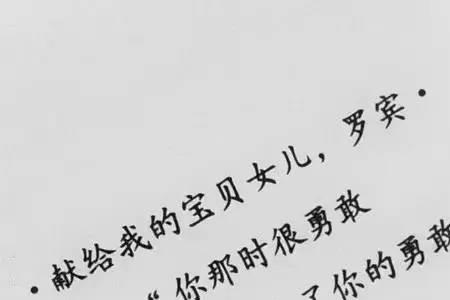 ·献给我的宝贝女儿，罗宾·
“你那时很勇敢
了你的勇敢